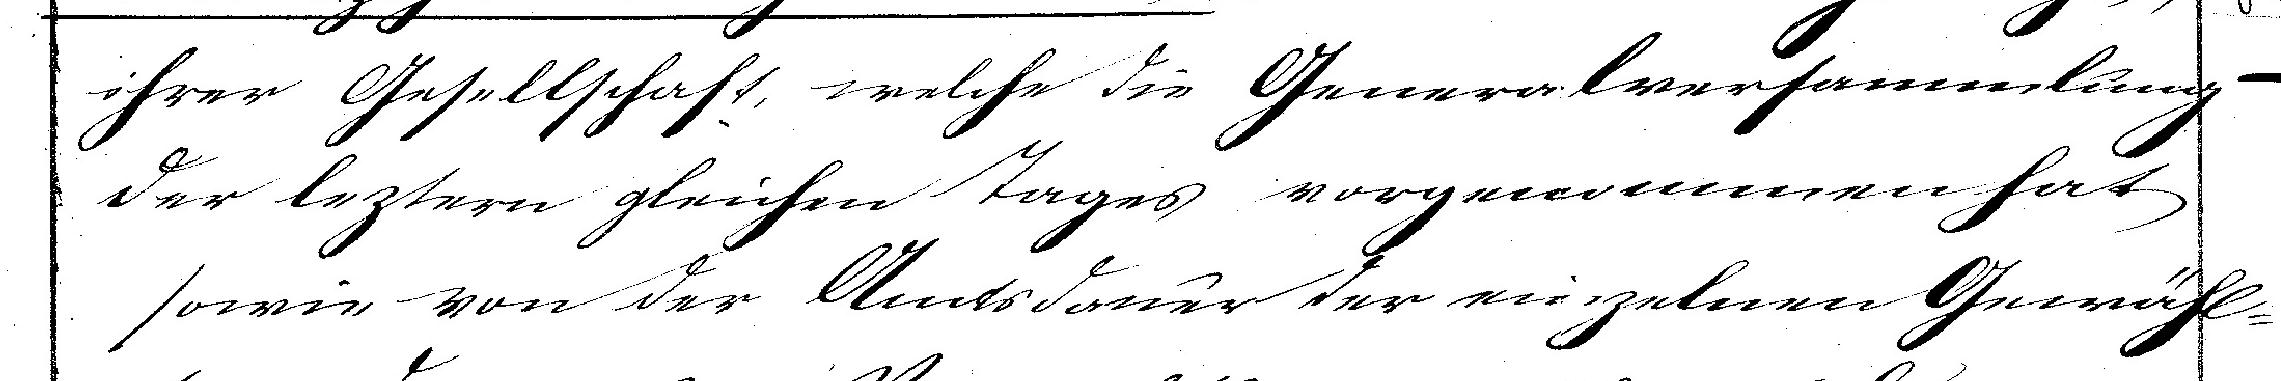 ihrer Gesellschaft, welche die Generalversammlung
der leztern gleichen Tages vorgenommen hat
sowie von der Amtsdauer der einzelnen Gewähl-